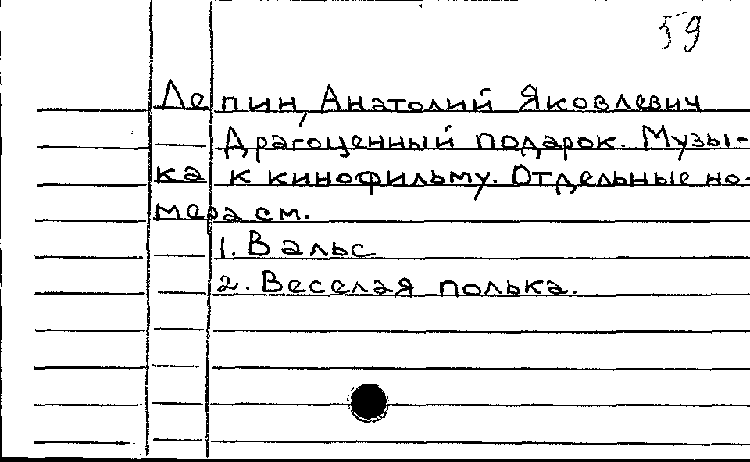 59
Лепин, Анатолий Яковлевич
Драгоценный подарок. Музы-
ка к кинофильму. Отдельные но-
мера см.
1. Вальс
2. Веселая полька.